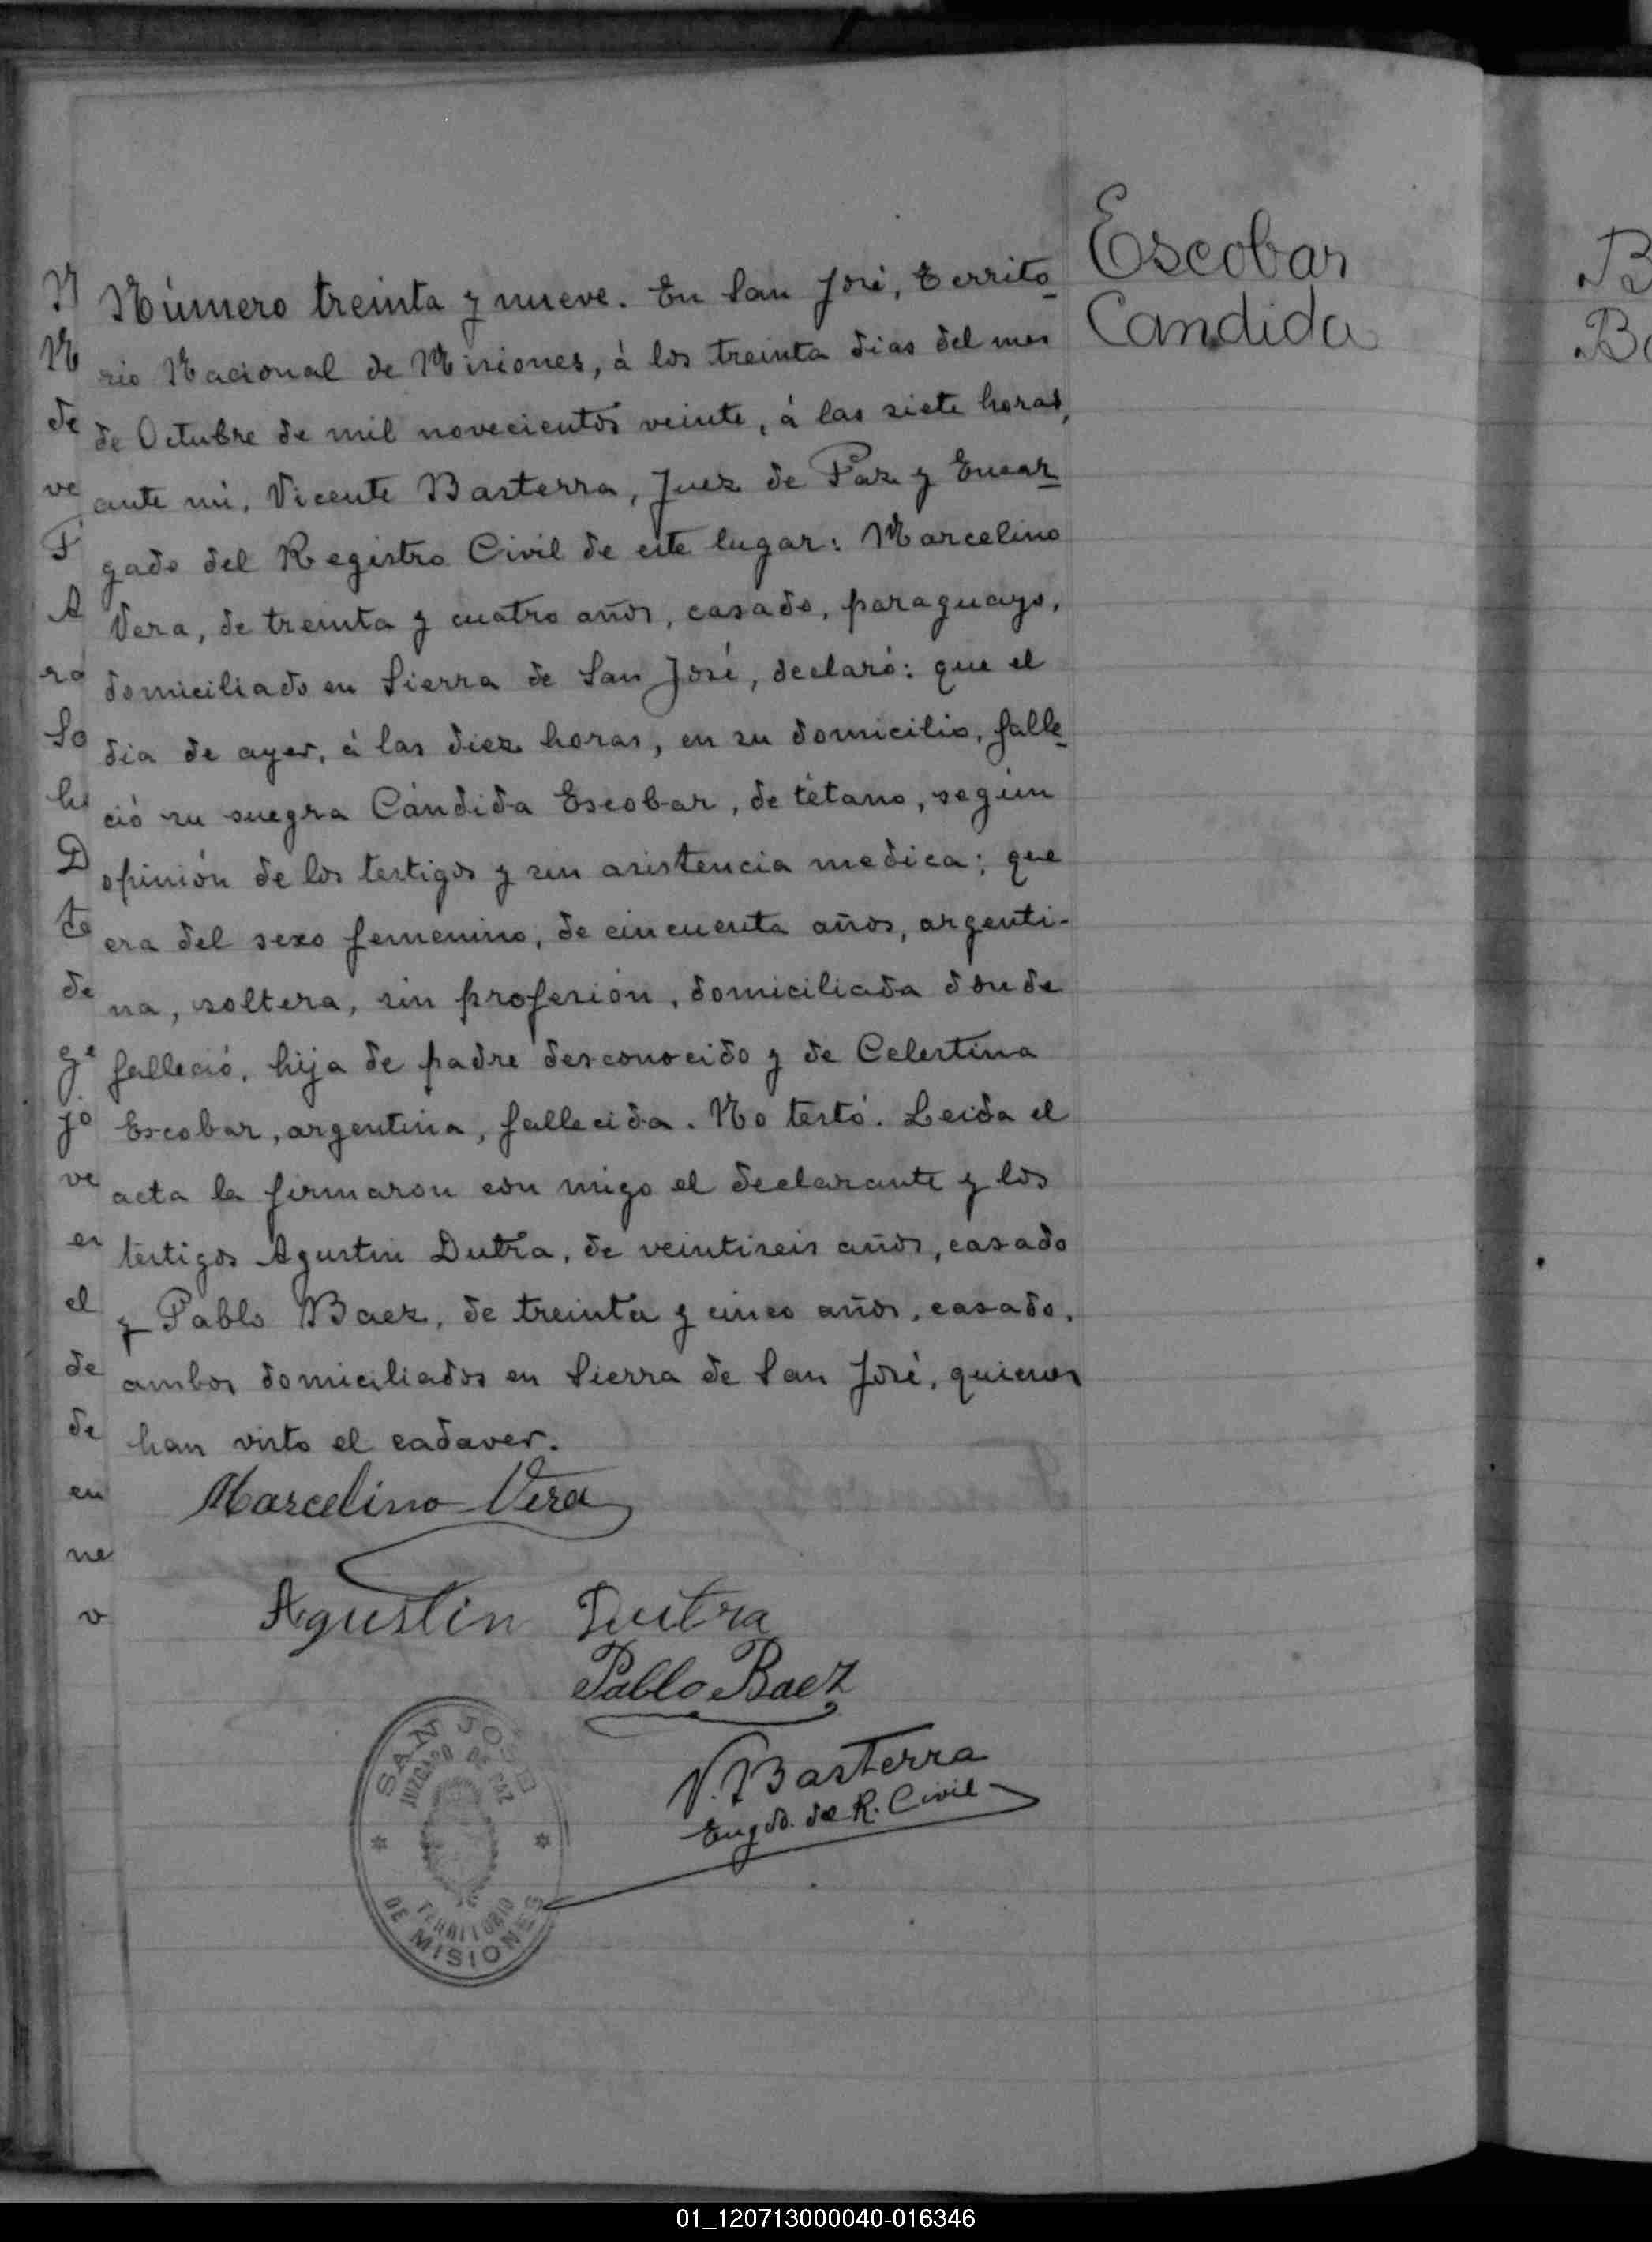 Escobar
Candida
Número treinta y nueve. En San José, Territo
rio Nacional de Misiones, á los treinta dias del mes
de Octubre de mil novecientos veinte, á las siete horas,
ante mi, Vicente Basterra, Juez de Paz y Encar
gado del Registro Civil de este lugar: Marcelino
Vera, de treinta y cuatro años, casado, paraguayo,
domiciliado en Sierra de San José, declaró: que el
dia de ayer, á las diez horas, en su domicilio, falle
ció su suegra Cándida Escobar, de tétano, según
opinión de los testigos y sin asistencia medica; que
era del sexo femenino, de cincuenta años, argenti-
na, soltera, sin profesión, domiciliada donde
falleció, hija de padre desconocido y de Celestina
Escobar, argentina, fallecida. No testó. Leida el
acta la firmaron con migo el declarante y los
testigos Agustin Dutra, de veintiseis años, casado
y Pablo Baez, de treinta y cinco años, casado,
ambos domiciliados en Sierra de San José, quienes
han visto el cadaver.
Marcelino Vera
Agustin Dutra
Pablo Baez
V. Basterra
Engdo. del R. Civil
SAN JOSE
JUZGADO DE PAZ
TERRITORIO
DE MISIONES
N
M
de
ve
F
A
ra
So
hi
D
to
de
ge
jo
ve
en
el
de
de
en
ne
v
B
B
01_120713000040-016346